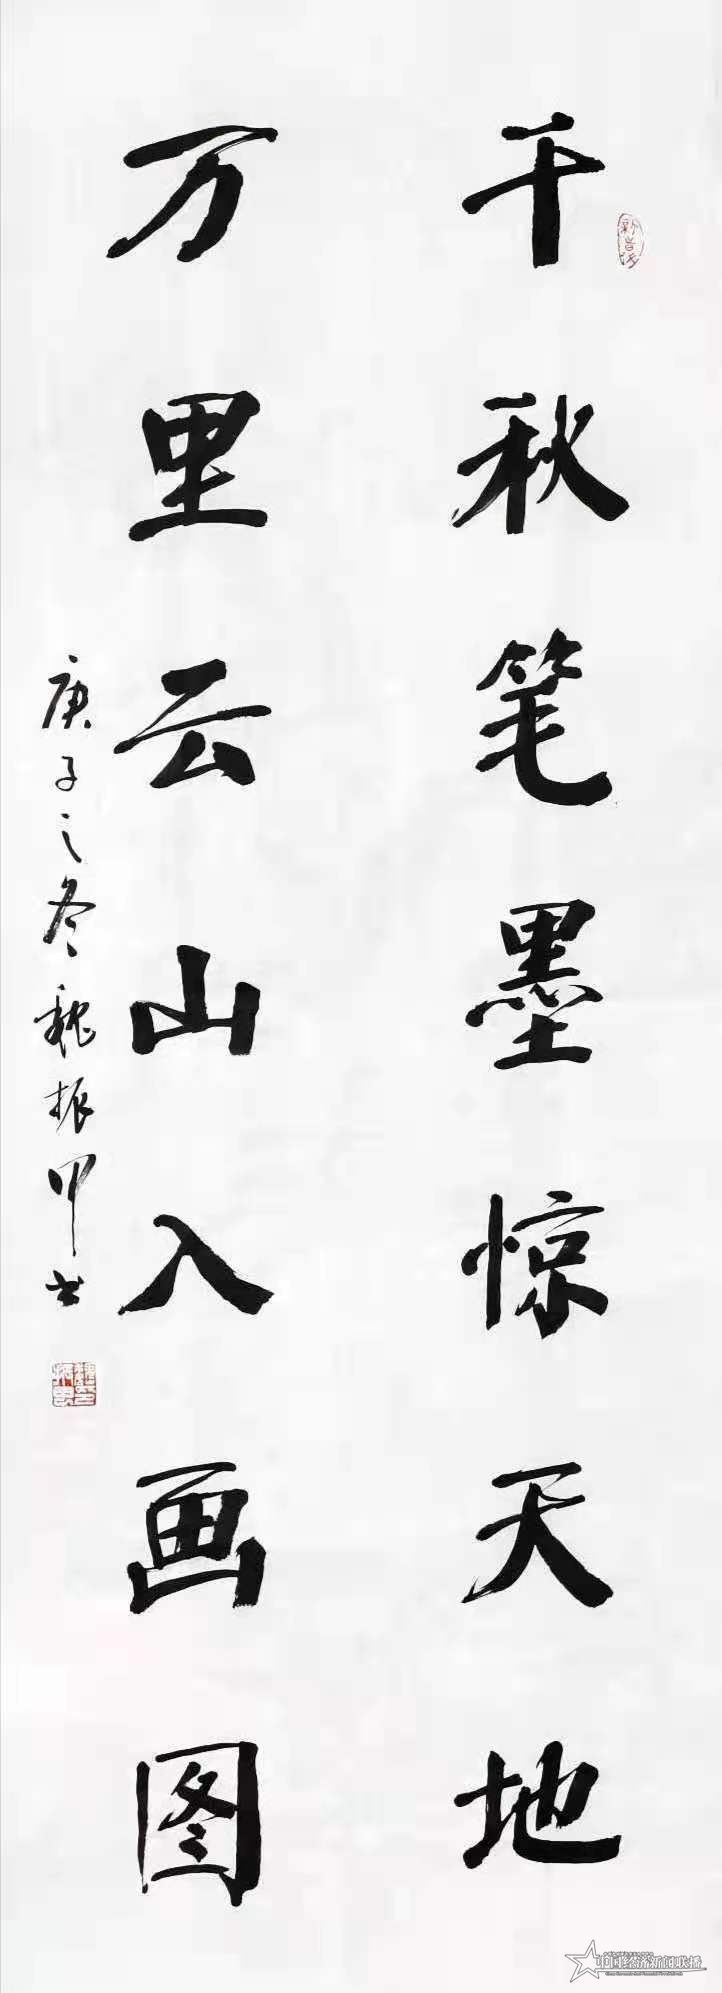 千秋笔墨惊天地
万里云山入画图
庚子之冬魏振甲书
中国经济新闻联播